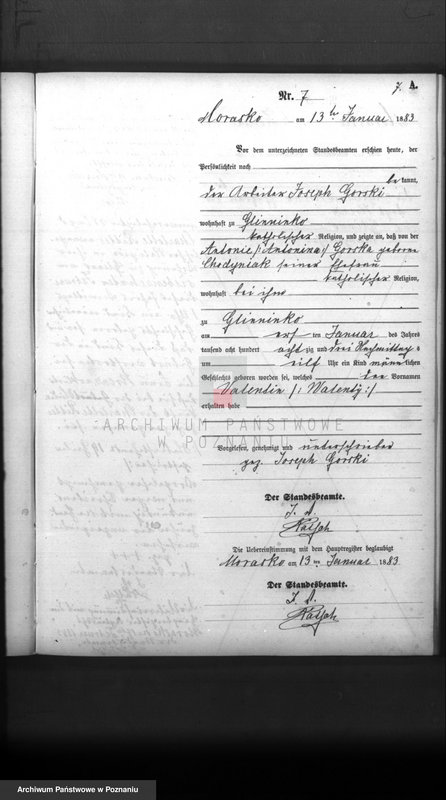 7. A.
Nr. 7
Morasko am 13ten Januar 1883
Vor dem unterzeichneten Standesbeamten erschien heute, der
Persönlichkeit nach
bekannt,
der Arbeiter Joseph Gorski
wohnhaft zu Glinninko
katholischer Religion, und zeigte an, daß von der
Antonie /: Antonina :/ Gorska geborene
Chodyniak seiner Ehefrau
katholischer Religion,
wohnhaft bei ihm
zu Glinninko
am elf ten Januar des Jahres
tausend acht hundert acht zig und drei Nachmittags
um eilf Uhr ein Kind männlichen
Geschlechts geboren worden sei, welches den Vornamen
Valentin /: Walenty :/
erhalten habe
ARCHIWUM PAŃSTWOWE
W POZNANIU
Vorgelesen, genehmigt und unterschrieben
gez. Joseph Górski
Der Standesbeamte.
Die Uebereinstimmung mit dem Hauptregister beglaubigt
Morasko am 13 ten Januar 1883
Der Standesbeamte.
Archiwum Państwowe w Poznaniu